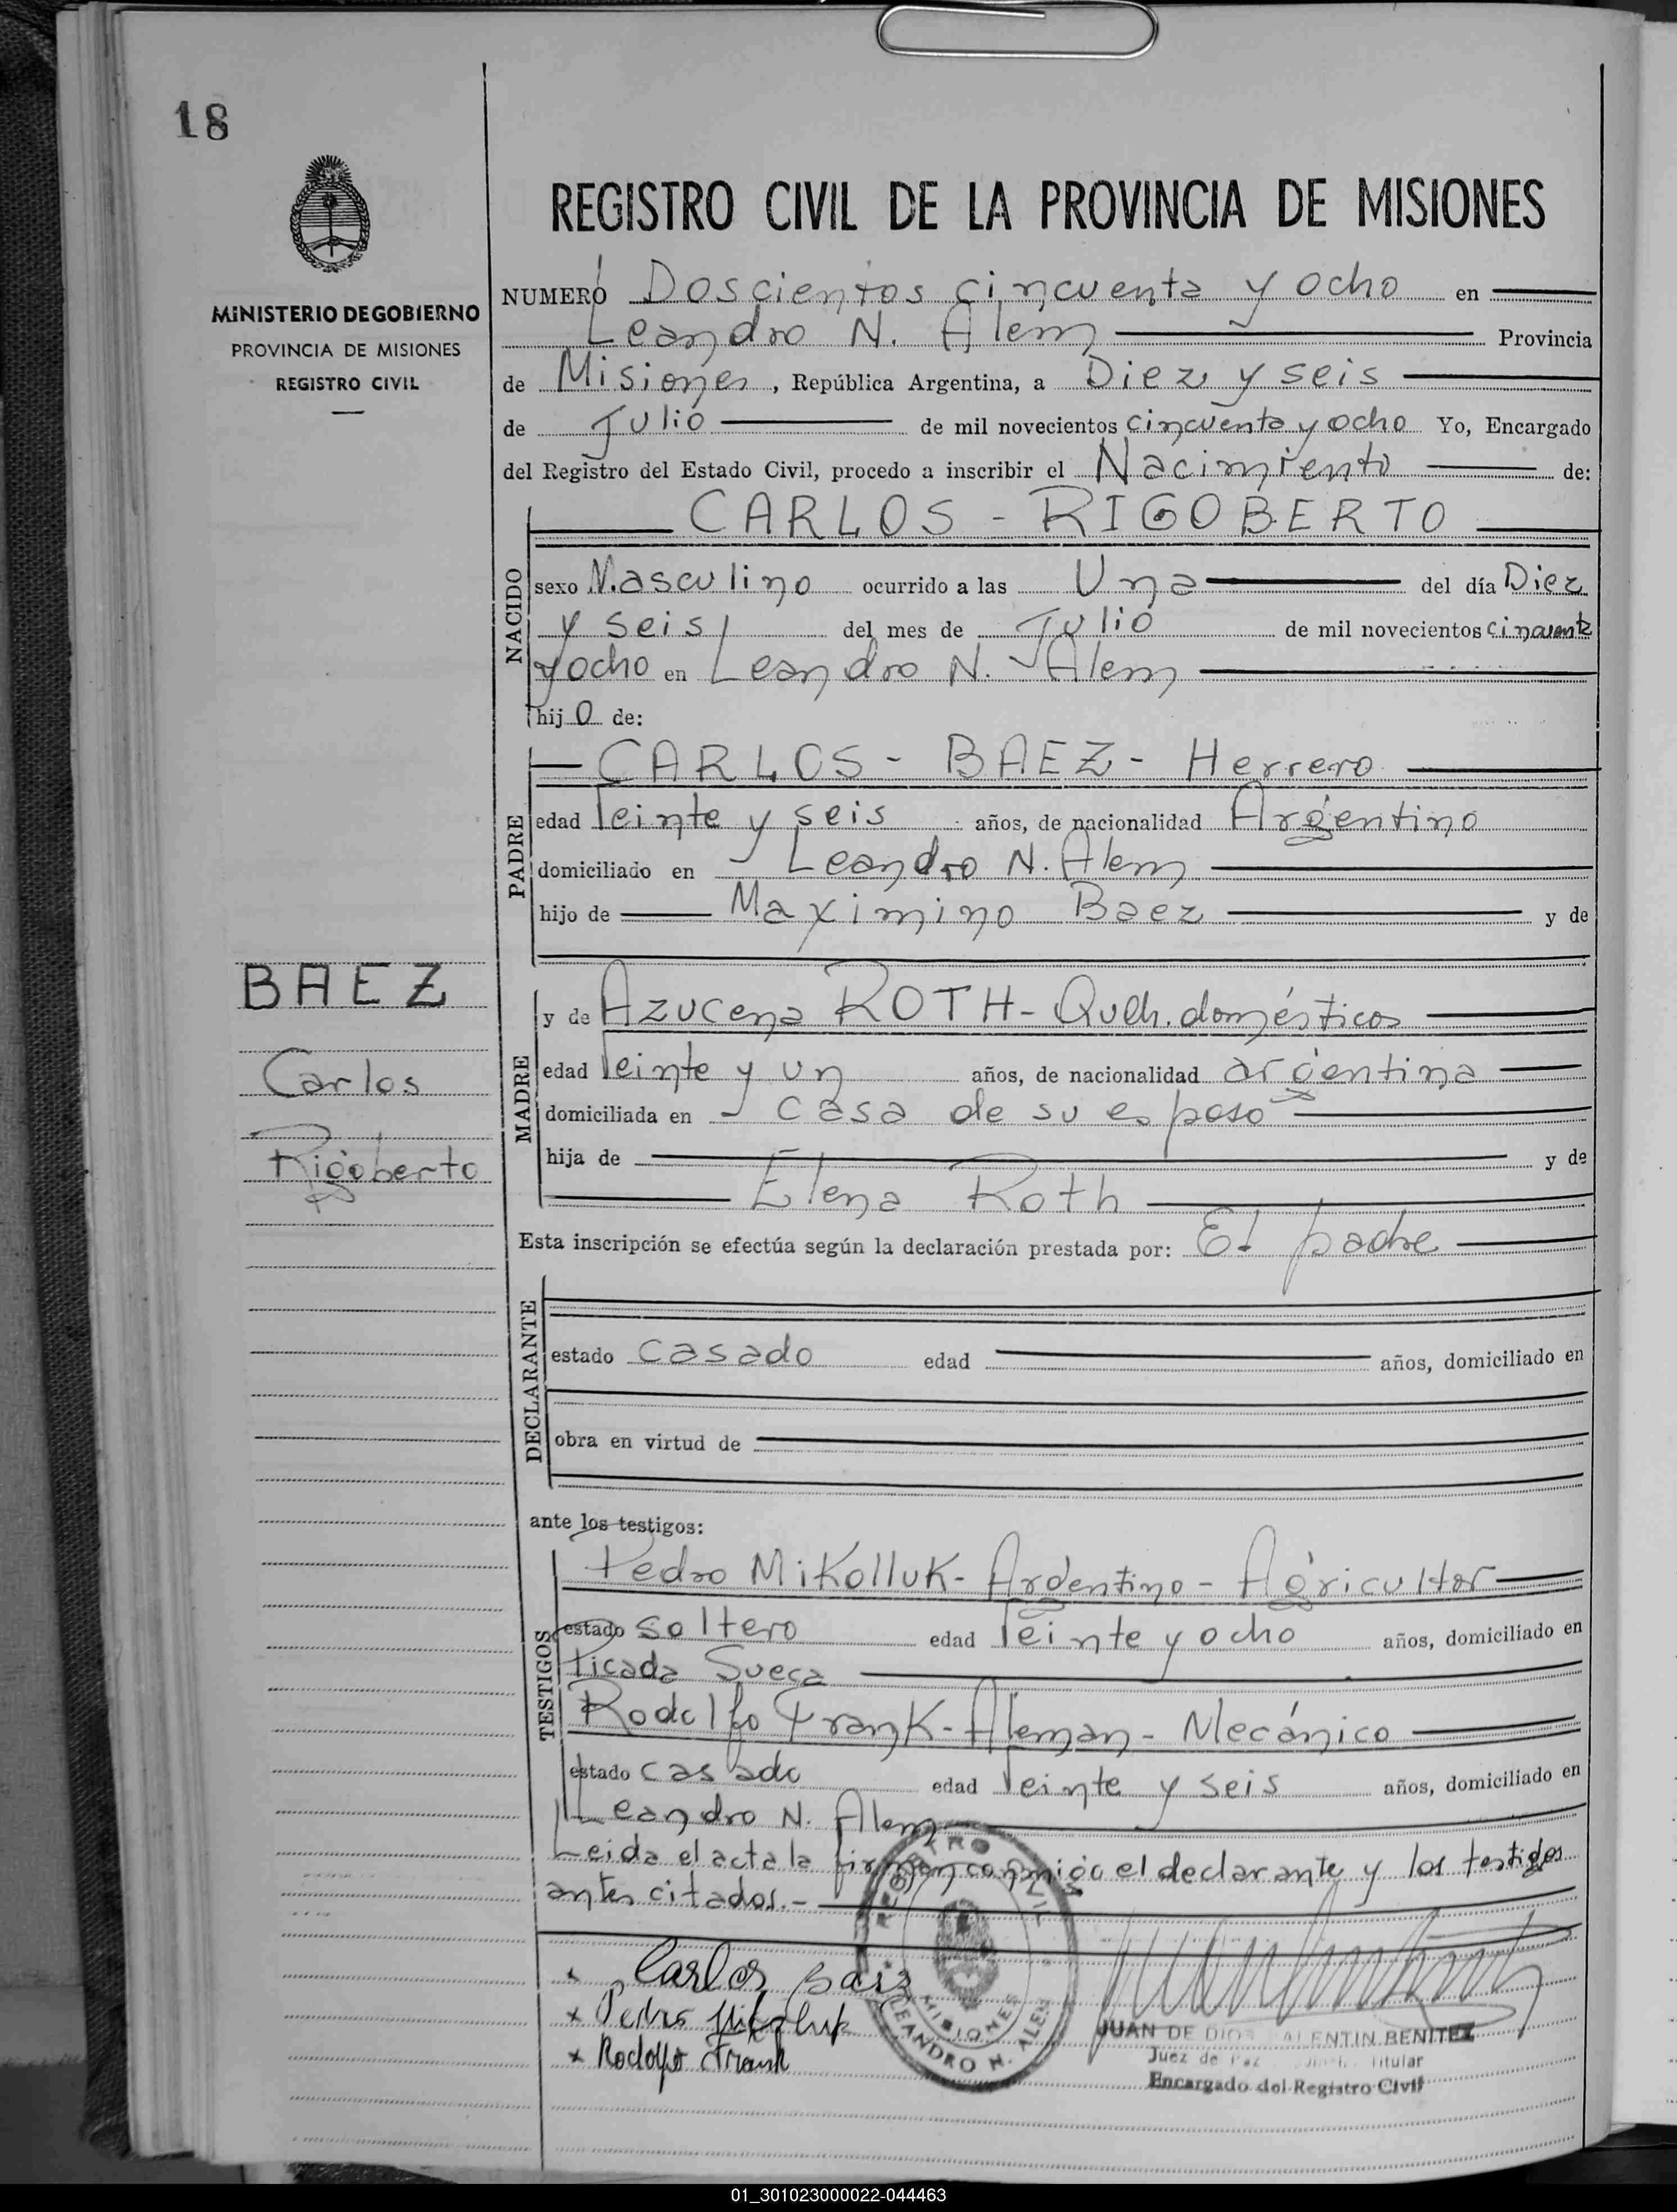 18
MINISTERIO DE GOBIERNO
PROVINCIA DE MISIONES
REGISTRO CIVIL
REGISTRO CIVIL DE LA PROVINCIA DE MISIONES
NUMERO Doscientos cincuenta y ocho en
Leandro N. Alem Provincia
de Misiones, República Argentina, a Diez y seis
de Julio de mil novecientos cincuenta y ocho Yo, Encargado
del Registro del Estado Civil, procedo a inscribir el Nacimiento de:
CARLOS - RIGOBERTO
NACIDO
sexo Masculino ocurrido a las Una del día Diez
y seis del mes de Julio de mil novecientos cincuenta
y ocho en Leandro N. Alem
hijo de:
CARLOS - BAEZ - Herrero
PADRE
edad Veinte y seis años, de nacionalidad Argentino
domiciliado en Leandro N. Alem
hijo de Maximino Baez y de
BAEZ
Carlos
Rigoberto
y de Azucena ROTH - Queh. domésticos
MADRE
edad Veinte y un años, de nacionalidad argentina
domiciliada en casa de su esposo
hija de y de
Elena Roth
Esta inscripción se efectúa según la declaración prestada por: El padre
DECLARANTE
estado casado edad años, domiciliado en
obra en virtud de
ante los testigos:
TESTIGOS
Pedro Mikolluk - Argentino - Agricultor
estado soltero edad Veinte y ocho años, domiciliado en
Picada Sueca
Rodolfo Frank - Aleman - Mecánico
estado casado edad Veinte y seis años, domiciliado en
Leandro N. Alem
Leida el acta la firman conmigo el declarante y los testigos
antes citados.-
REGISTRO CIVIL
MISIONES
LEANDRO N. ALEM
x Carlos Baez
x Pedro Mikoluk
x Rodolfo Frank
JUAN DE DIOS VALENTIN BENITEZ
Juez de Paz Titular
Encargado del Registro Civil
01_301023000022-044463